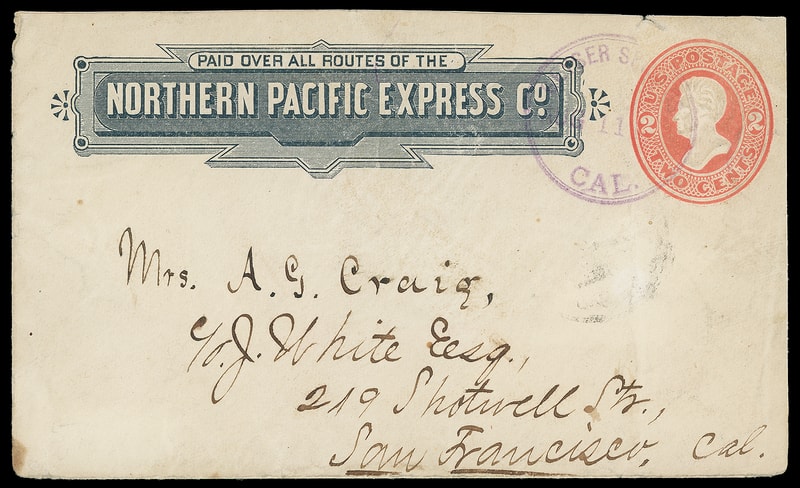 PAID OVER ALL ROUTES OF THE
NORTHERN PACIFIC EXPRESS Co.
11
CAL.
U.S. POSTAGE
2 2
TWO CENTS
Mrs. A. G. Craig,
c/o. J. White Esq.,
219 Shotwell Str.,
San Francisco, Cal.